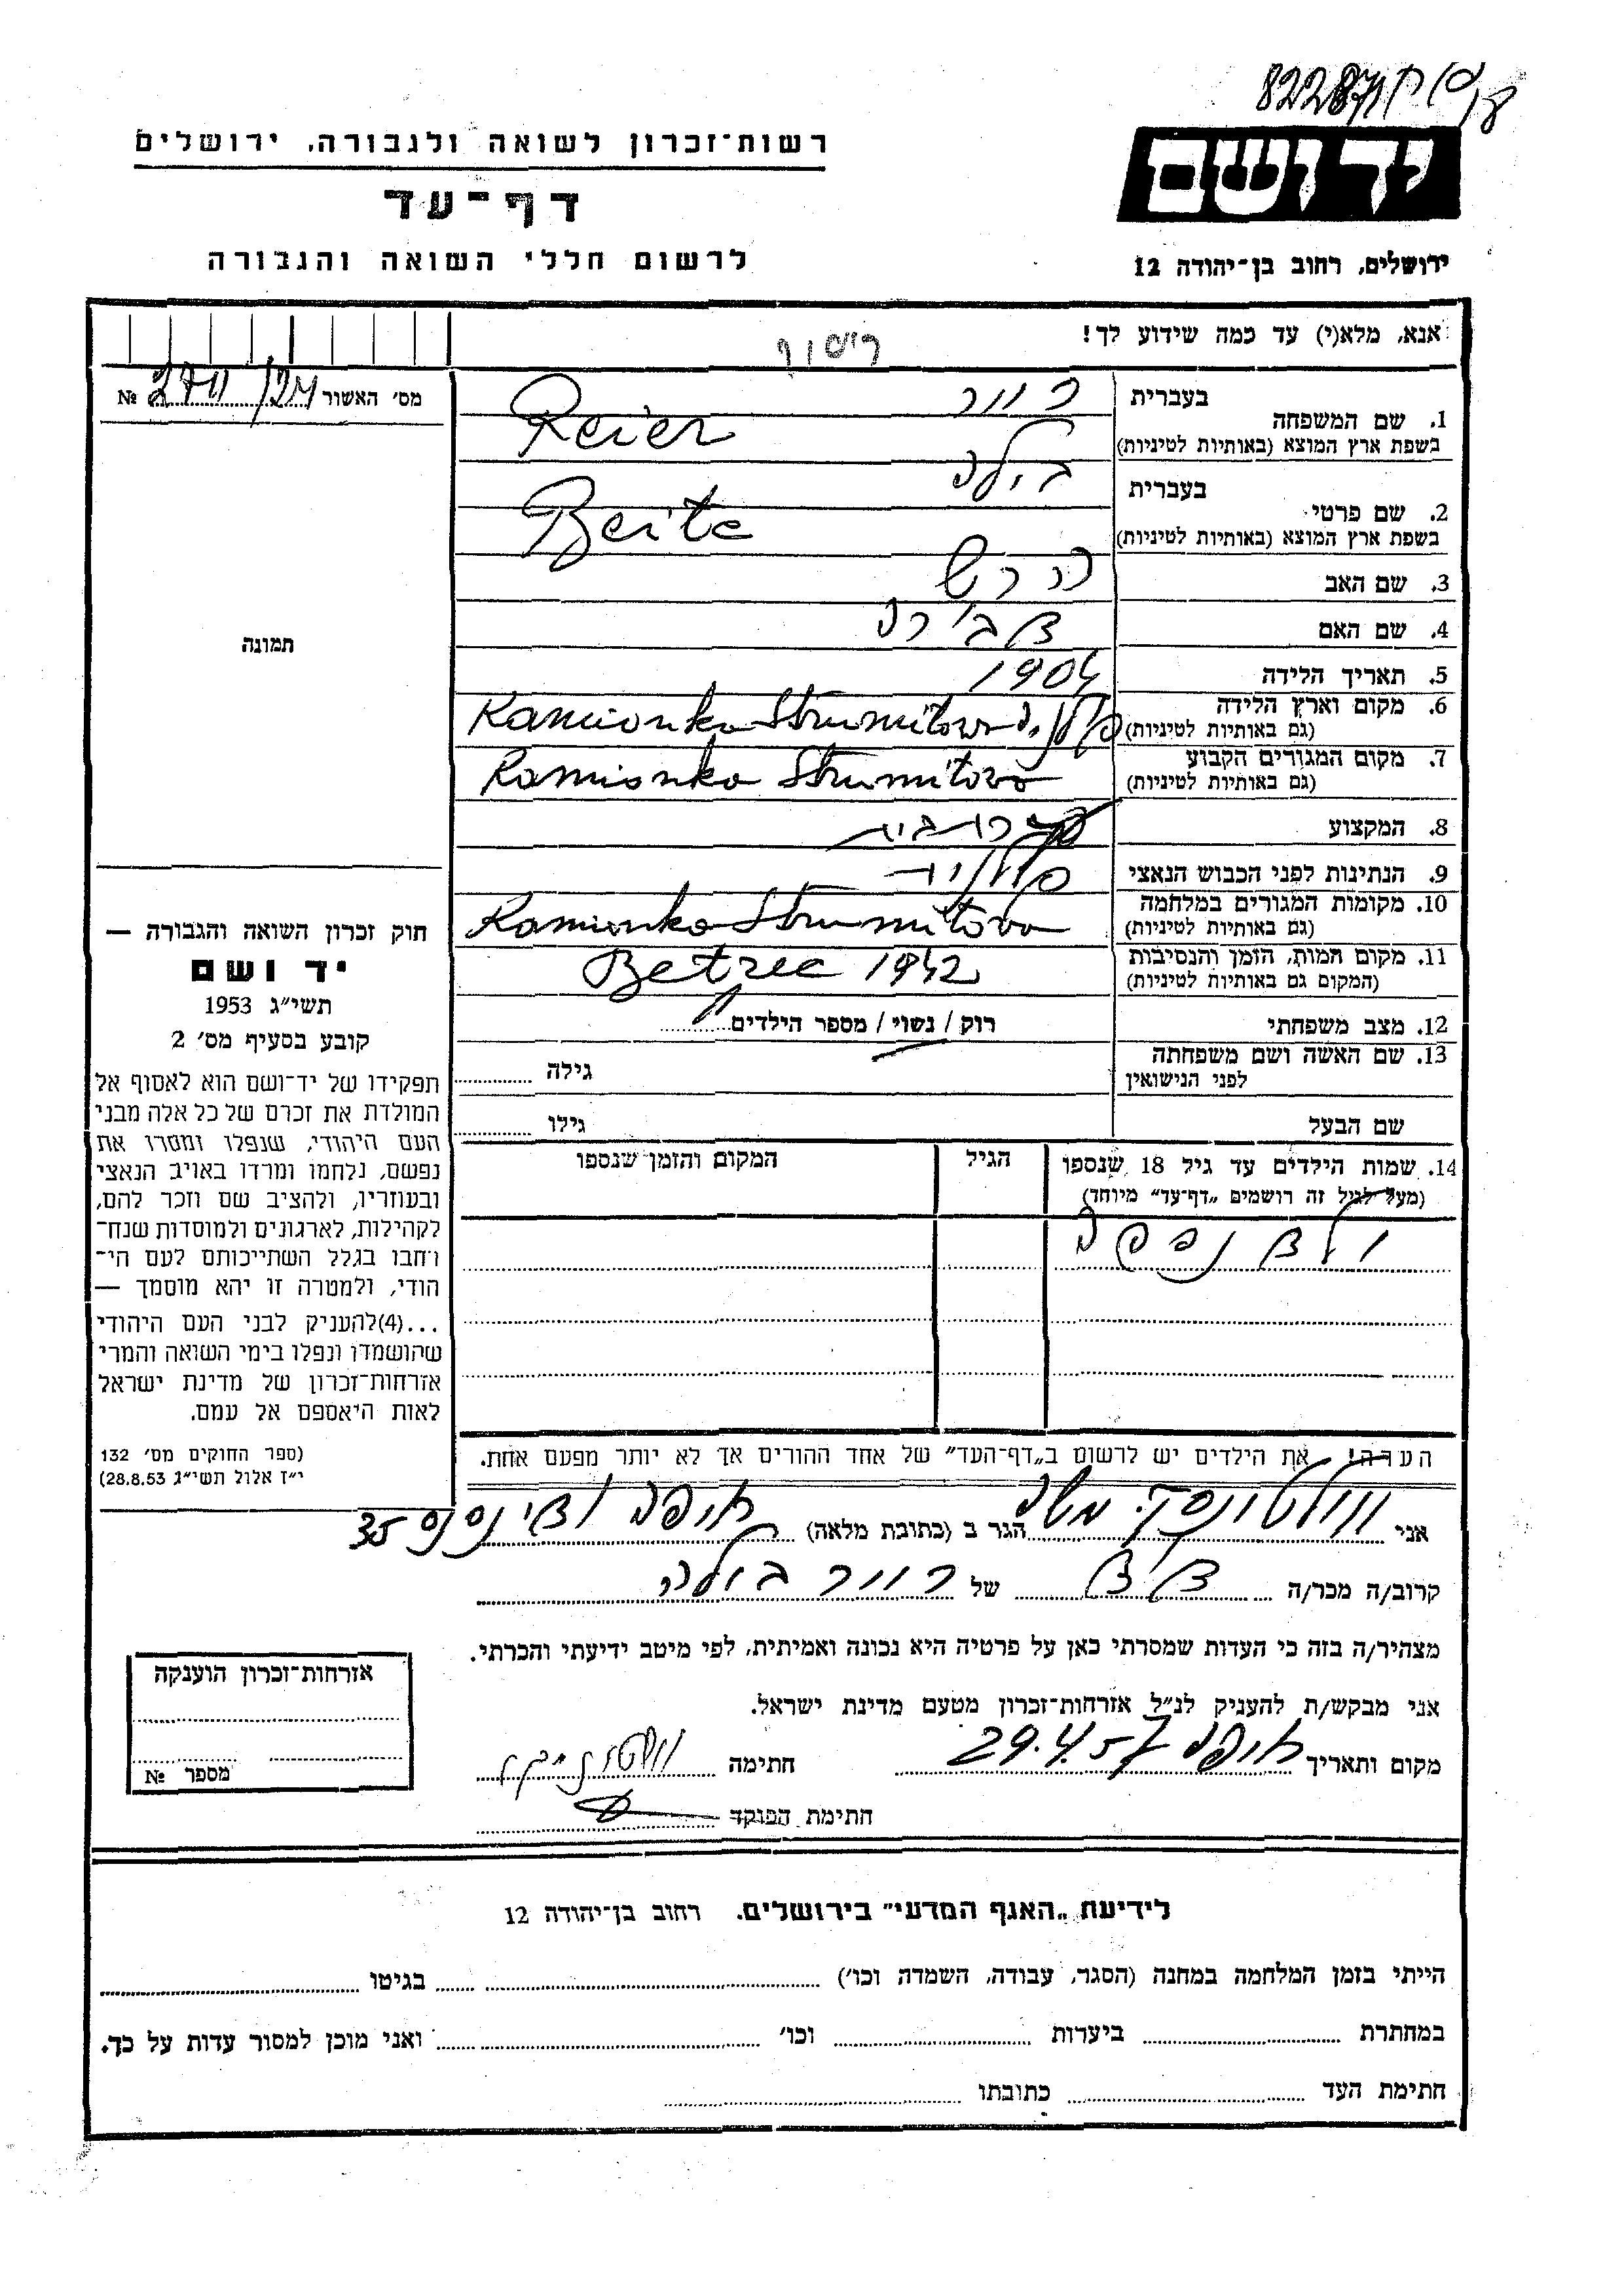 רשות־זכרון לשואה ולגבורה, ירושלים
דף־עד
לרשום חללי השואה והגבורה
יד ושם
ירושלים, רחוב בן־יהודה 12
אנא, מלא(י) עד כמה שידוע לך!
מס׳ האשור № 
תמונה
1. שם המשפחה בעברית
בשפת ארץ המוצא (באותיות לטיניות) Reier
2. שם פרטי בעברית
בשפת ארץ המוצא (באותיות לטיניות)
3. שם האב הרש
4. שם האם
5. תאריך הלידה 1904
6. מקום וארץ הלידה (גם באותיות לטיניות) Kamionka Strumitowa
7. מקום המגורים הקבוע (גם באותיות לטיניות) Kamionka Strumitova
8. המקצוע
9. הנתינות לפני הכבוש הנאצי
10. מקומות המגורים במלחמה (גם באותיות לטיניות) Kamionka Strumitova
11. מקום המות, הזמן והנסיבות (המקום גם באותיות לטיניות) Betzec 1942
12. מצב משפחתי רוק / נשוי / מספר הילדים
13. שם האשה ושם משפחתה לפני הנישואין גילה
שם הבעל גילו
14. שמות הילדים עד גיל 18 שנספו
(מעל לגיל זה רושמים „דף־עד” מיוחד)
הגיל
המקום והזמן שנספו
הערה! — את הילדים יש לרשום ב„דף־העד” של אחד ההורים אך לא יותר מפעם אחת.
חוק זכרון השואה והגבורה —
יד ושם
תשי״ג 1953
קובע בסעיף מס׳ 2
תפקידו של יד־ושם הוא לאסוף אל
המולדת את זכרם של כל אלה מבני
העם היהודי, שנפלו ומסרו את
נפשם, נלחמו ומרדו באויב הנאצי
ובעוזריו, ולהציב שם וזכר להם,
לקהילות, לארגונים ולמוסדות שנח־
רחבו בגלל השתייכותם לעם הי־
הודי, ולמטרה זו יהא מוסמך —
...(4)להעניק לבני העם היהודי
שהושמדו ונפלו בימי השואה והמרי
אזרחות־זכרון של מדינת ישראל
לאות היאספם אל עמם.
(ספר החוקים מס׳ 132
י״ז אלול תשי״ג 28.8.53)
אני הגר ב (כתובת מלאה) חיפה 35
קרוב/ה מכר/ה של
מצהיר/ה בזה כי העדות שמסרתי כאן על פרטיה היא נכונה ואמיתית, לפי מיטב ידיעתי והכרתי.
אני מבקש/ת להעניק לנ״ל אזרחות־זכרון מטעם מדינת ישראל.
מקום ותאריך חיפה 29.4.57 חתימה
חתימת הפוקד
אזרחות־זכרון הוענקה
מספר №
לידיעת „האגף המדעי” בירושלים, רחוב בן־יהודה 12
הייתי בזמן המלחמה במחנה (הסגר, עבודה, השמדה וכו׳) בגיטו
במחתרת ביערות וכו׳ ואני מוכן למסור עדות על כך.
חתימת העד כתובתו